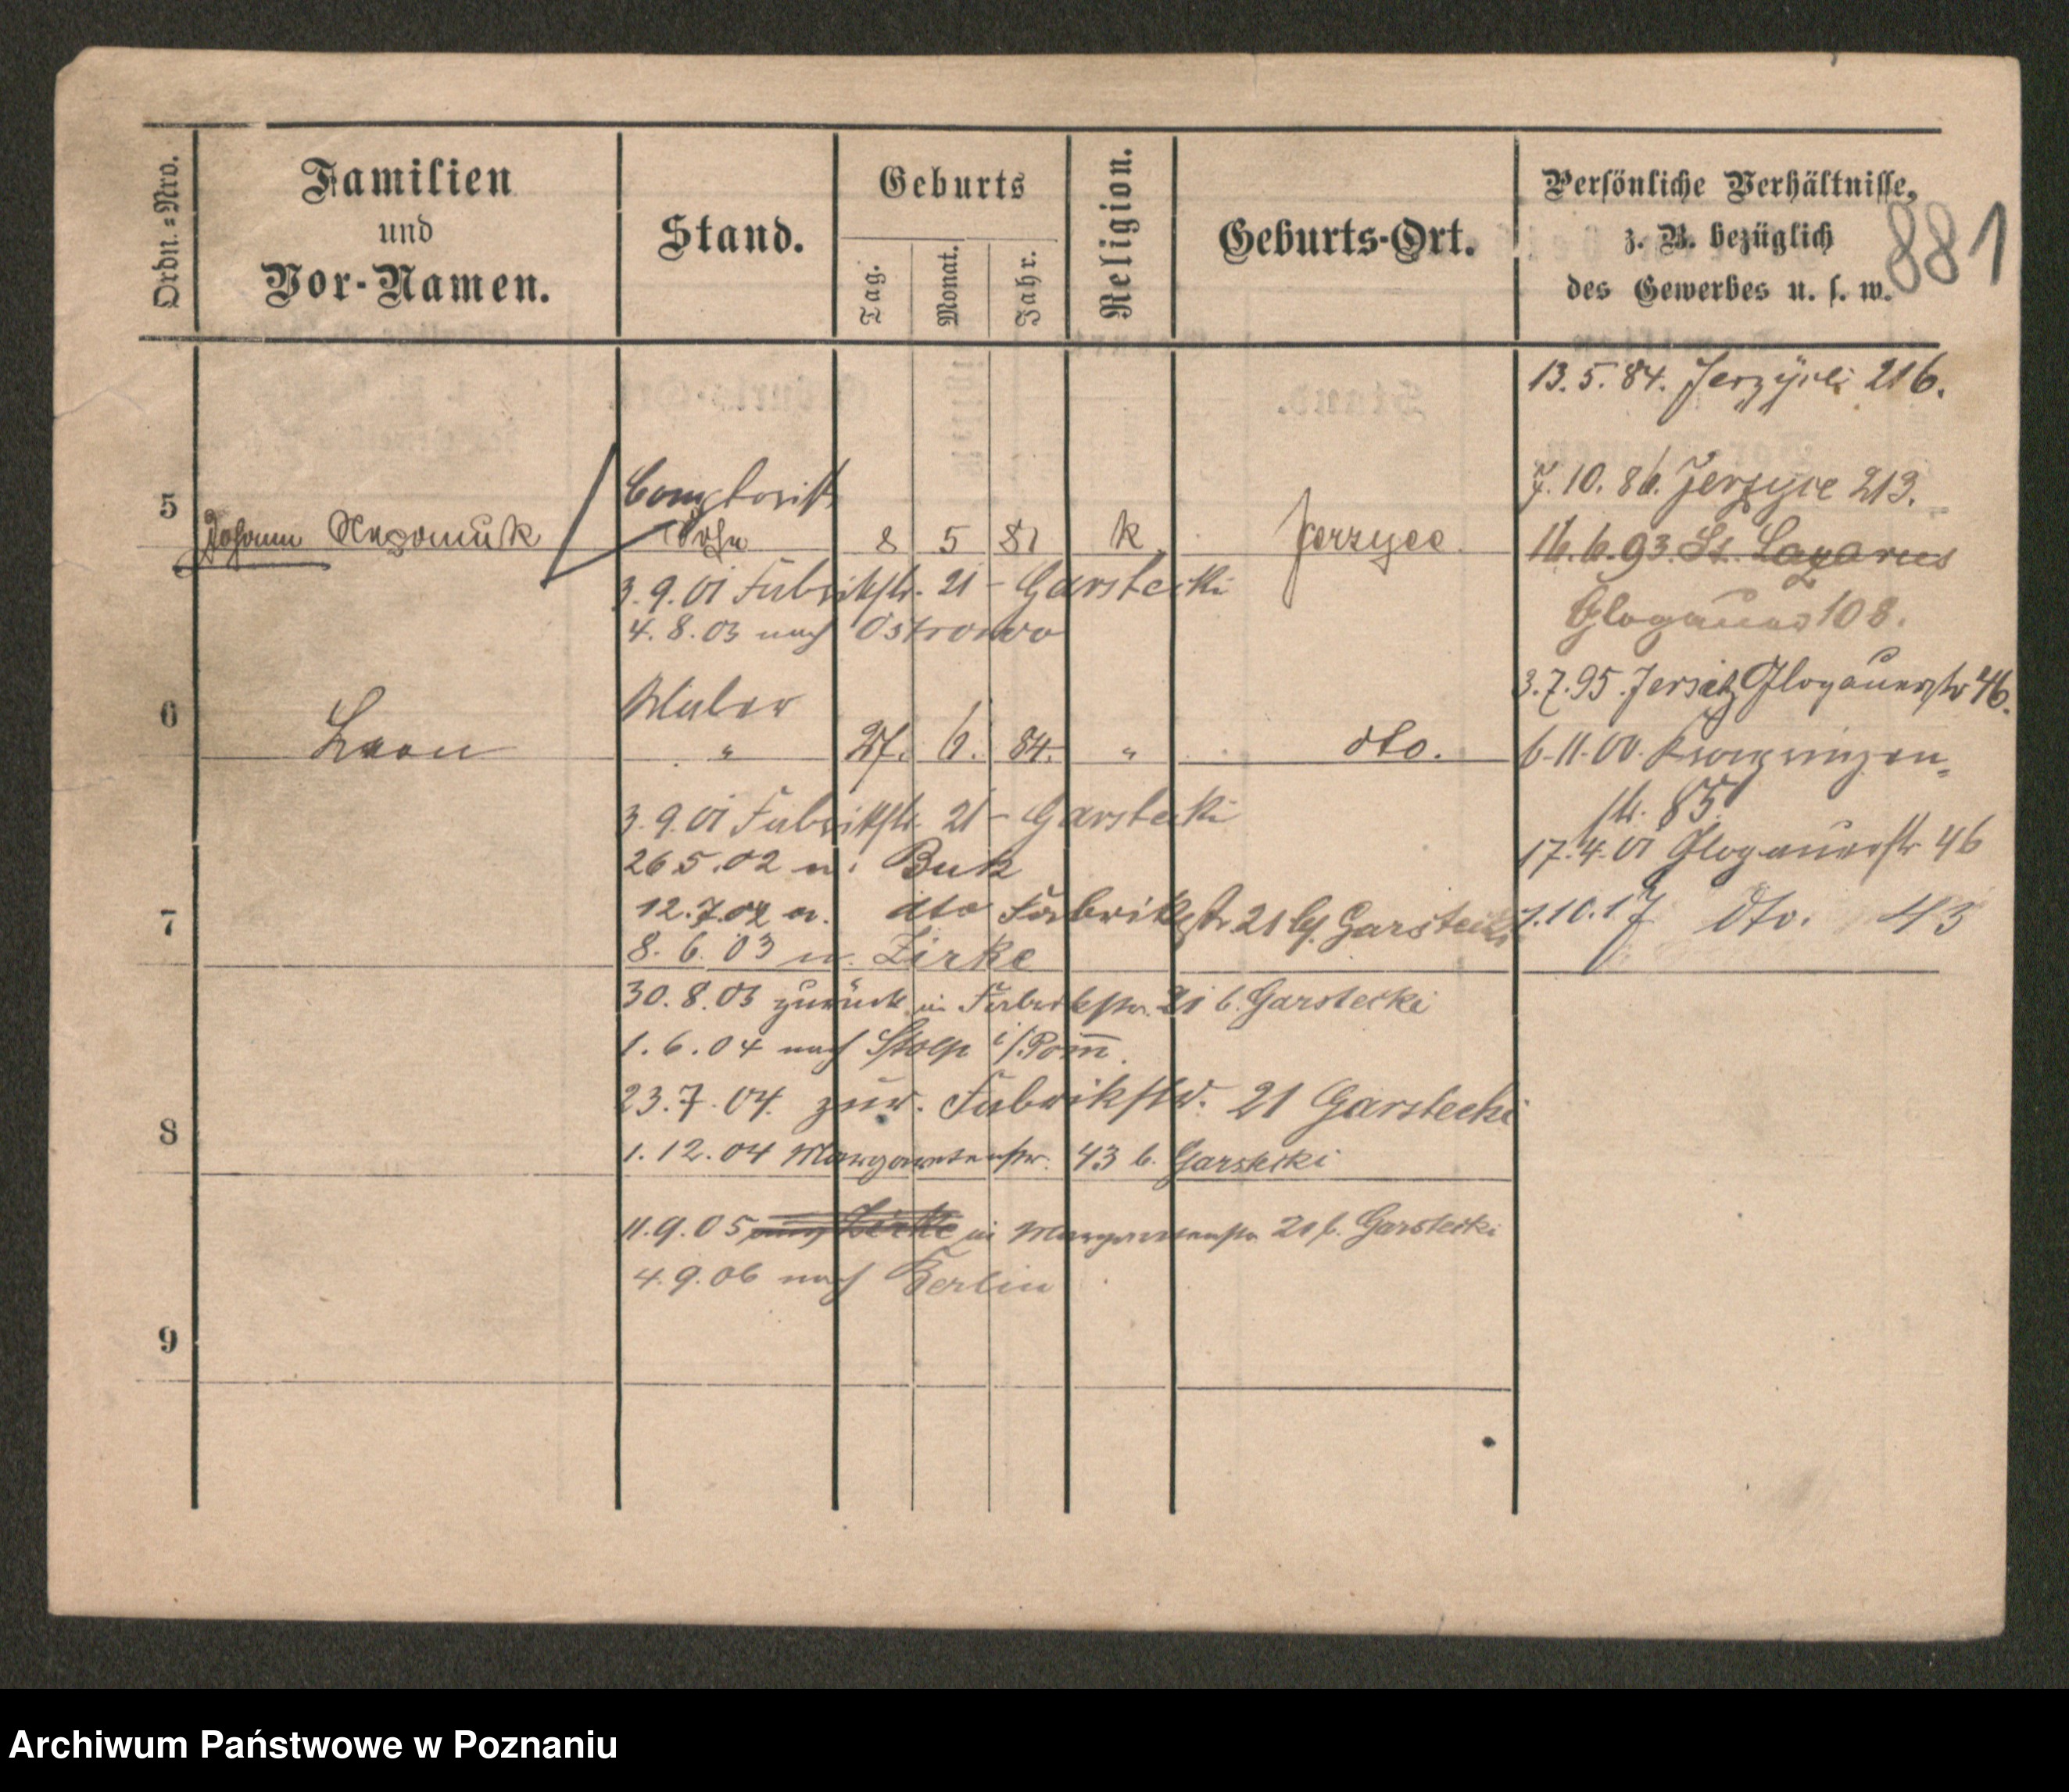 Ordn.=Nro.
Familien
und
Vor-Namen.
Stand.
Geburts
Tag.
Monat.
Jahr.
Religion.
Geburts-Ort.
Persönliche Verhältnisse,
z. B. bezüglich
des Gewerbes u. s. w.
881
13. 5. 84. 216.
7. 10. 86. Jerzyce 213.
5
Comptorist
Johann Nepomuk Sohn 8 5 81 k Jerzyce
16. 6. 93. St. Lazarus
3. 9. 01 Fabrikstr. 21 - Garstecki
Glogauer 108.
4. 8. 03 nach Ostrowo
3. 7. 95. Jersitz Glogauerstr 46.
6
Maler
Leon " 27. 6. 84. " dto.
6-11-00. Kronprinzen-
str. 85
3. 9. 01 Fabrikstr. 21 - Garstecki
17. 4. 01 Glogauerstr 46
26 5. 02 n. Buk
7
12. 7. 02 a. dto Fabrikstr 21 b/ Garstecki
1. 10. 17 dto. 43
8. 6. 03 n. Zirke
30. 8. 03 zurück in Fabrikstr. 21 b. Garstecki
1. 6. 04 nach Stolp i/Pom̅.
23. 7. 04. zur. Fabrikstr. 21 Garstecki
8
1. 12. 04 Margaretenstr. 43 b. Garstecki
11. 9. 05 nach Zirke in Margaretenstr 21 b. Garstecki
4. 9. 06 nach Berlin
9
Archiwum Państwowe w Poznaniu